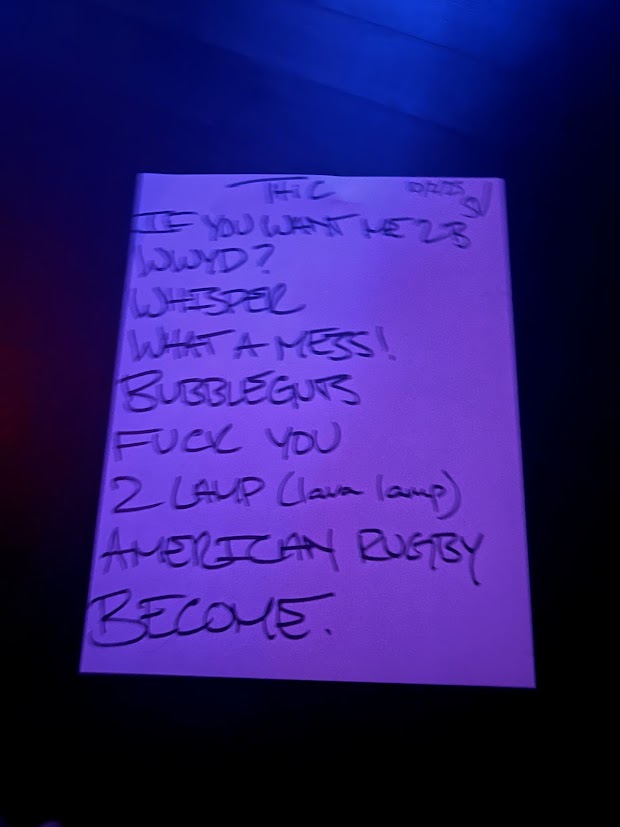 THiC 10/2/25
SV
IF YOU WANT ME 2 B
WWYD?
WHISPER
WHAT A MESS!
BUBBLEGUTS
FUCK YOU
2 LAMP (lava lamp)
AMERICAN RUGBY
BECOME.